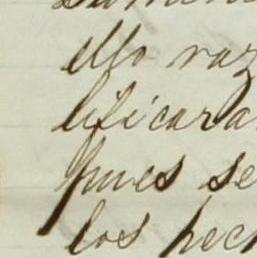 ello raz
lificara
pues se
los hech